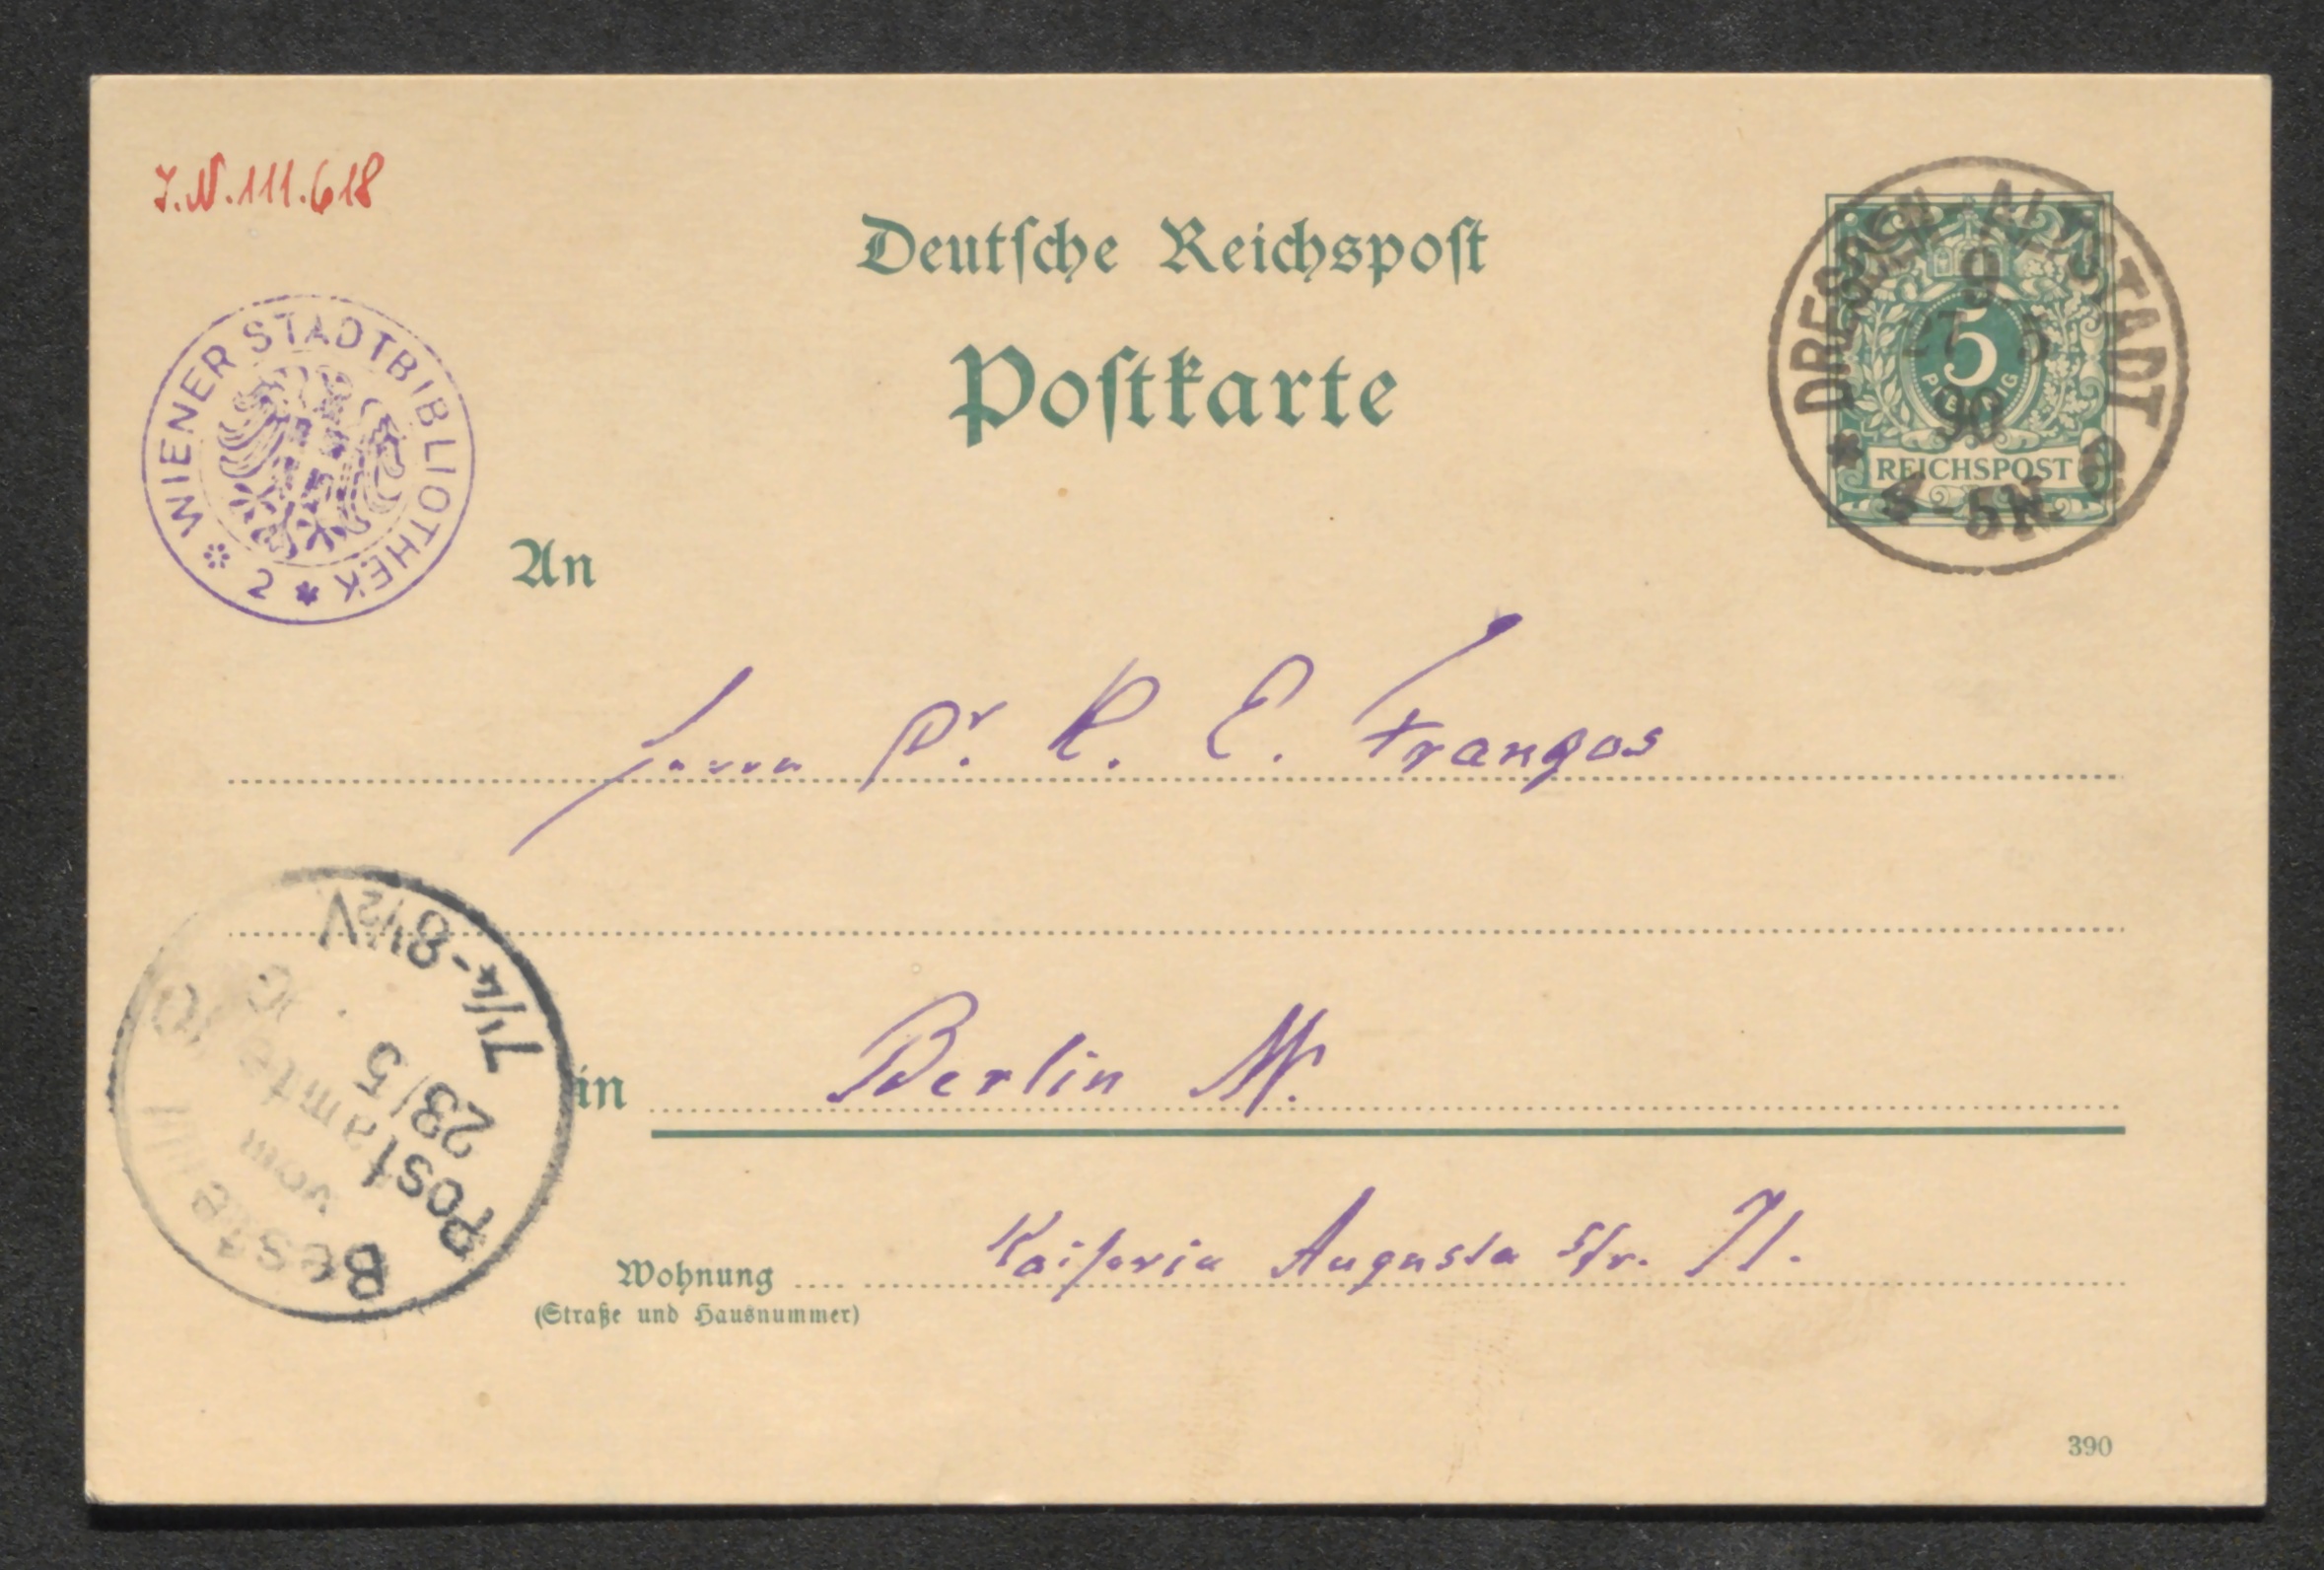 J.N.111.618
Deutsche Reichspost
Postkarte
DRESDEN ALTSTADT
9
27 5
90
4-5N.
5
PFENNIG
REICHSPOST
* WIENER STADTBIBLIOTHEK * 2
An
Herrn Dr. K. E. Franzos
in Berlin W.
Wohnung Kaiserin Augusta Str. 71.
(Straße und Hausnummer)
Bestellt
vom
Postamte
28/5
7¼-8½V
390